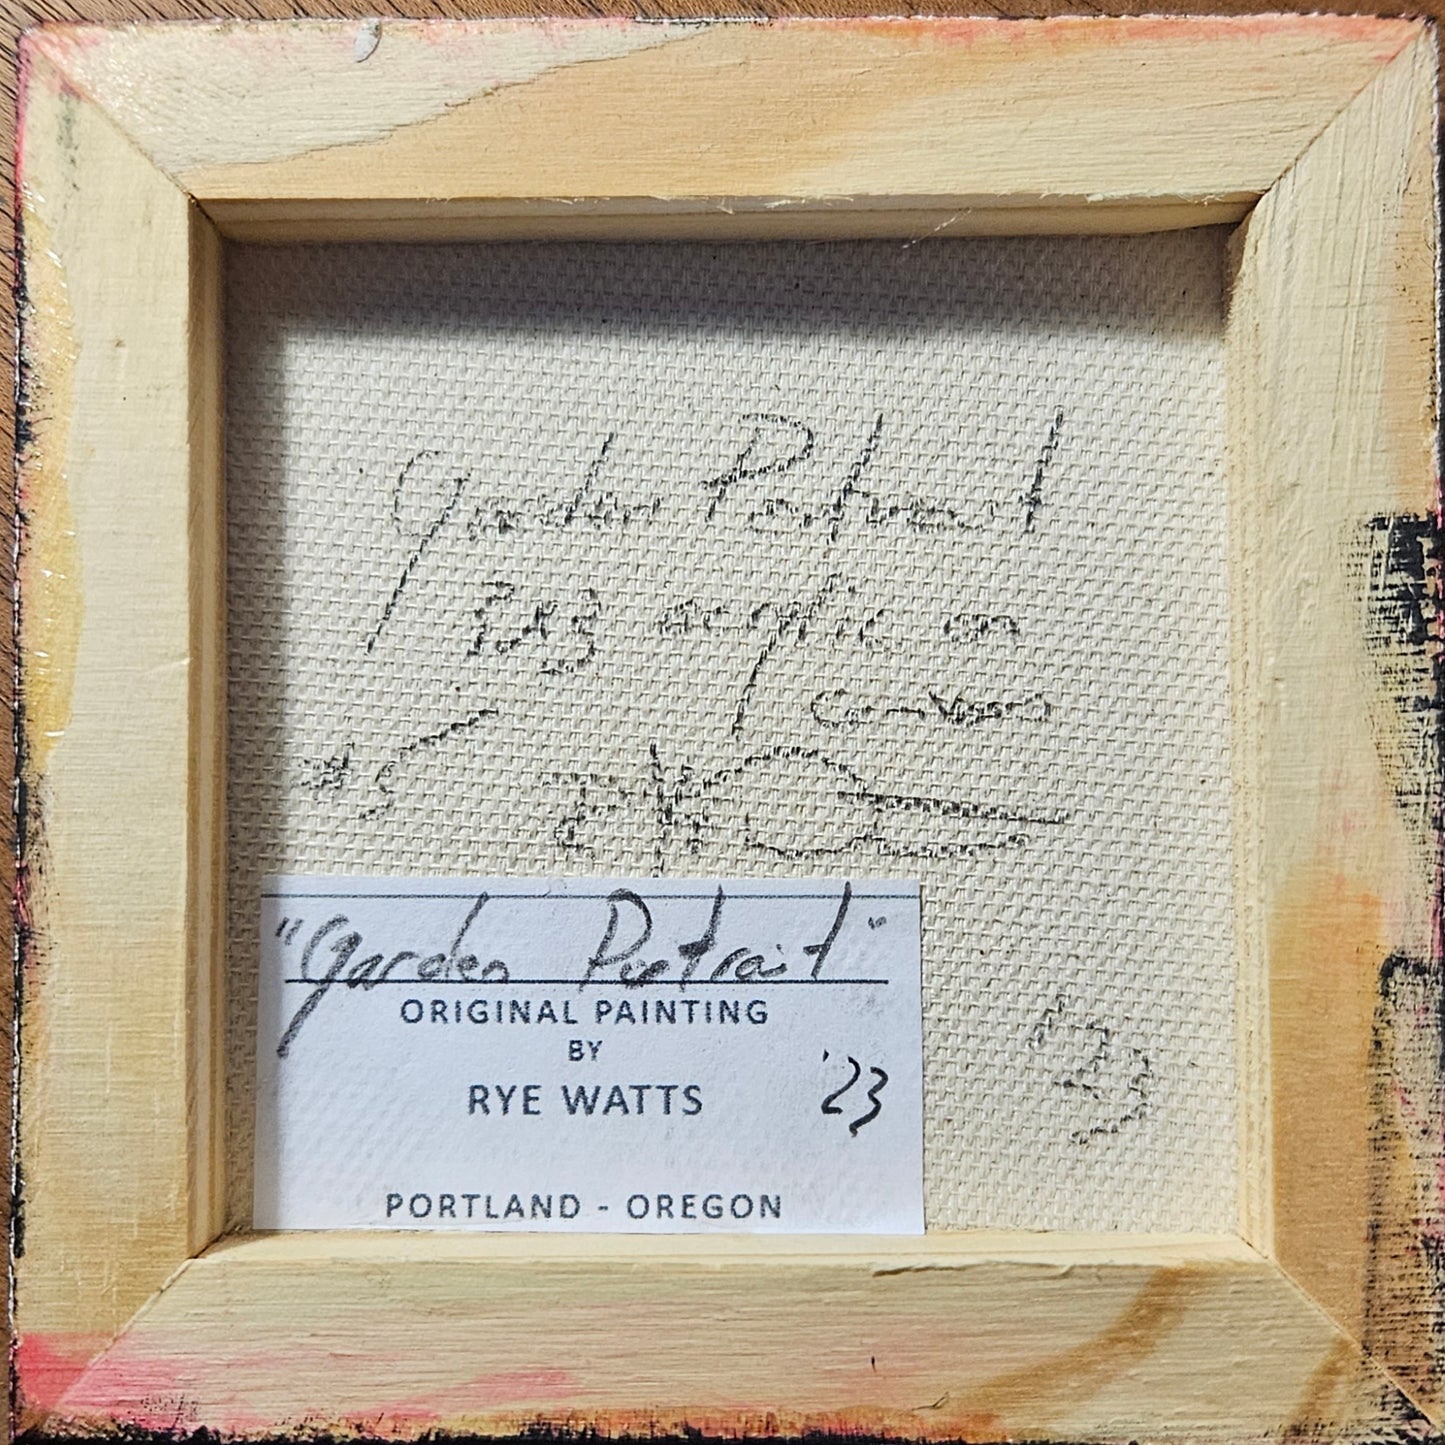 Garden Portrait
3x3 acrylic on
Canvas
#5
"Garden Portrait"
ORIGINAL PAINTING
BY
RYE WATTS
'23
PORTLAND - OREGON
'23